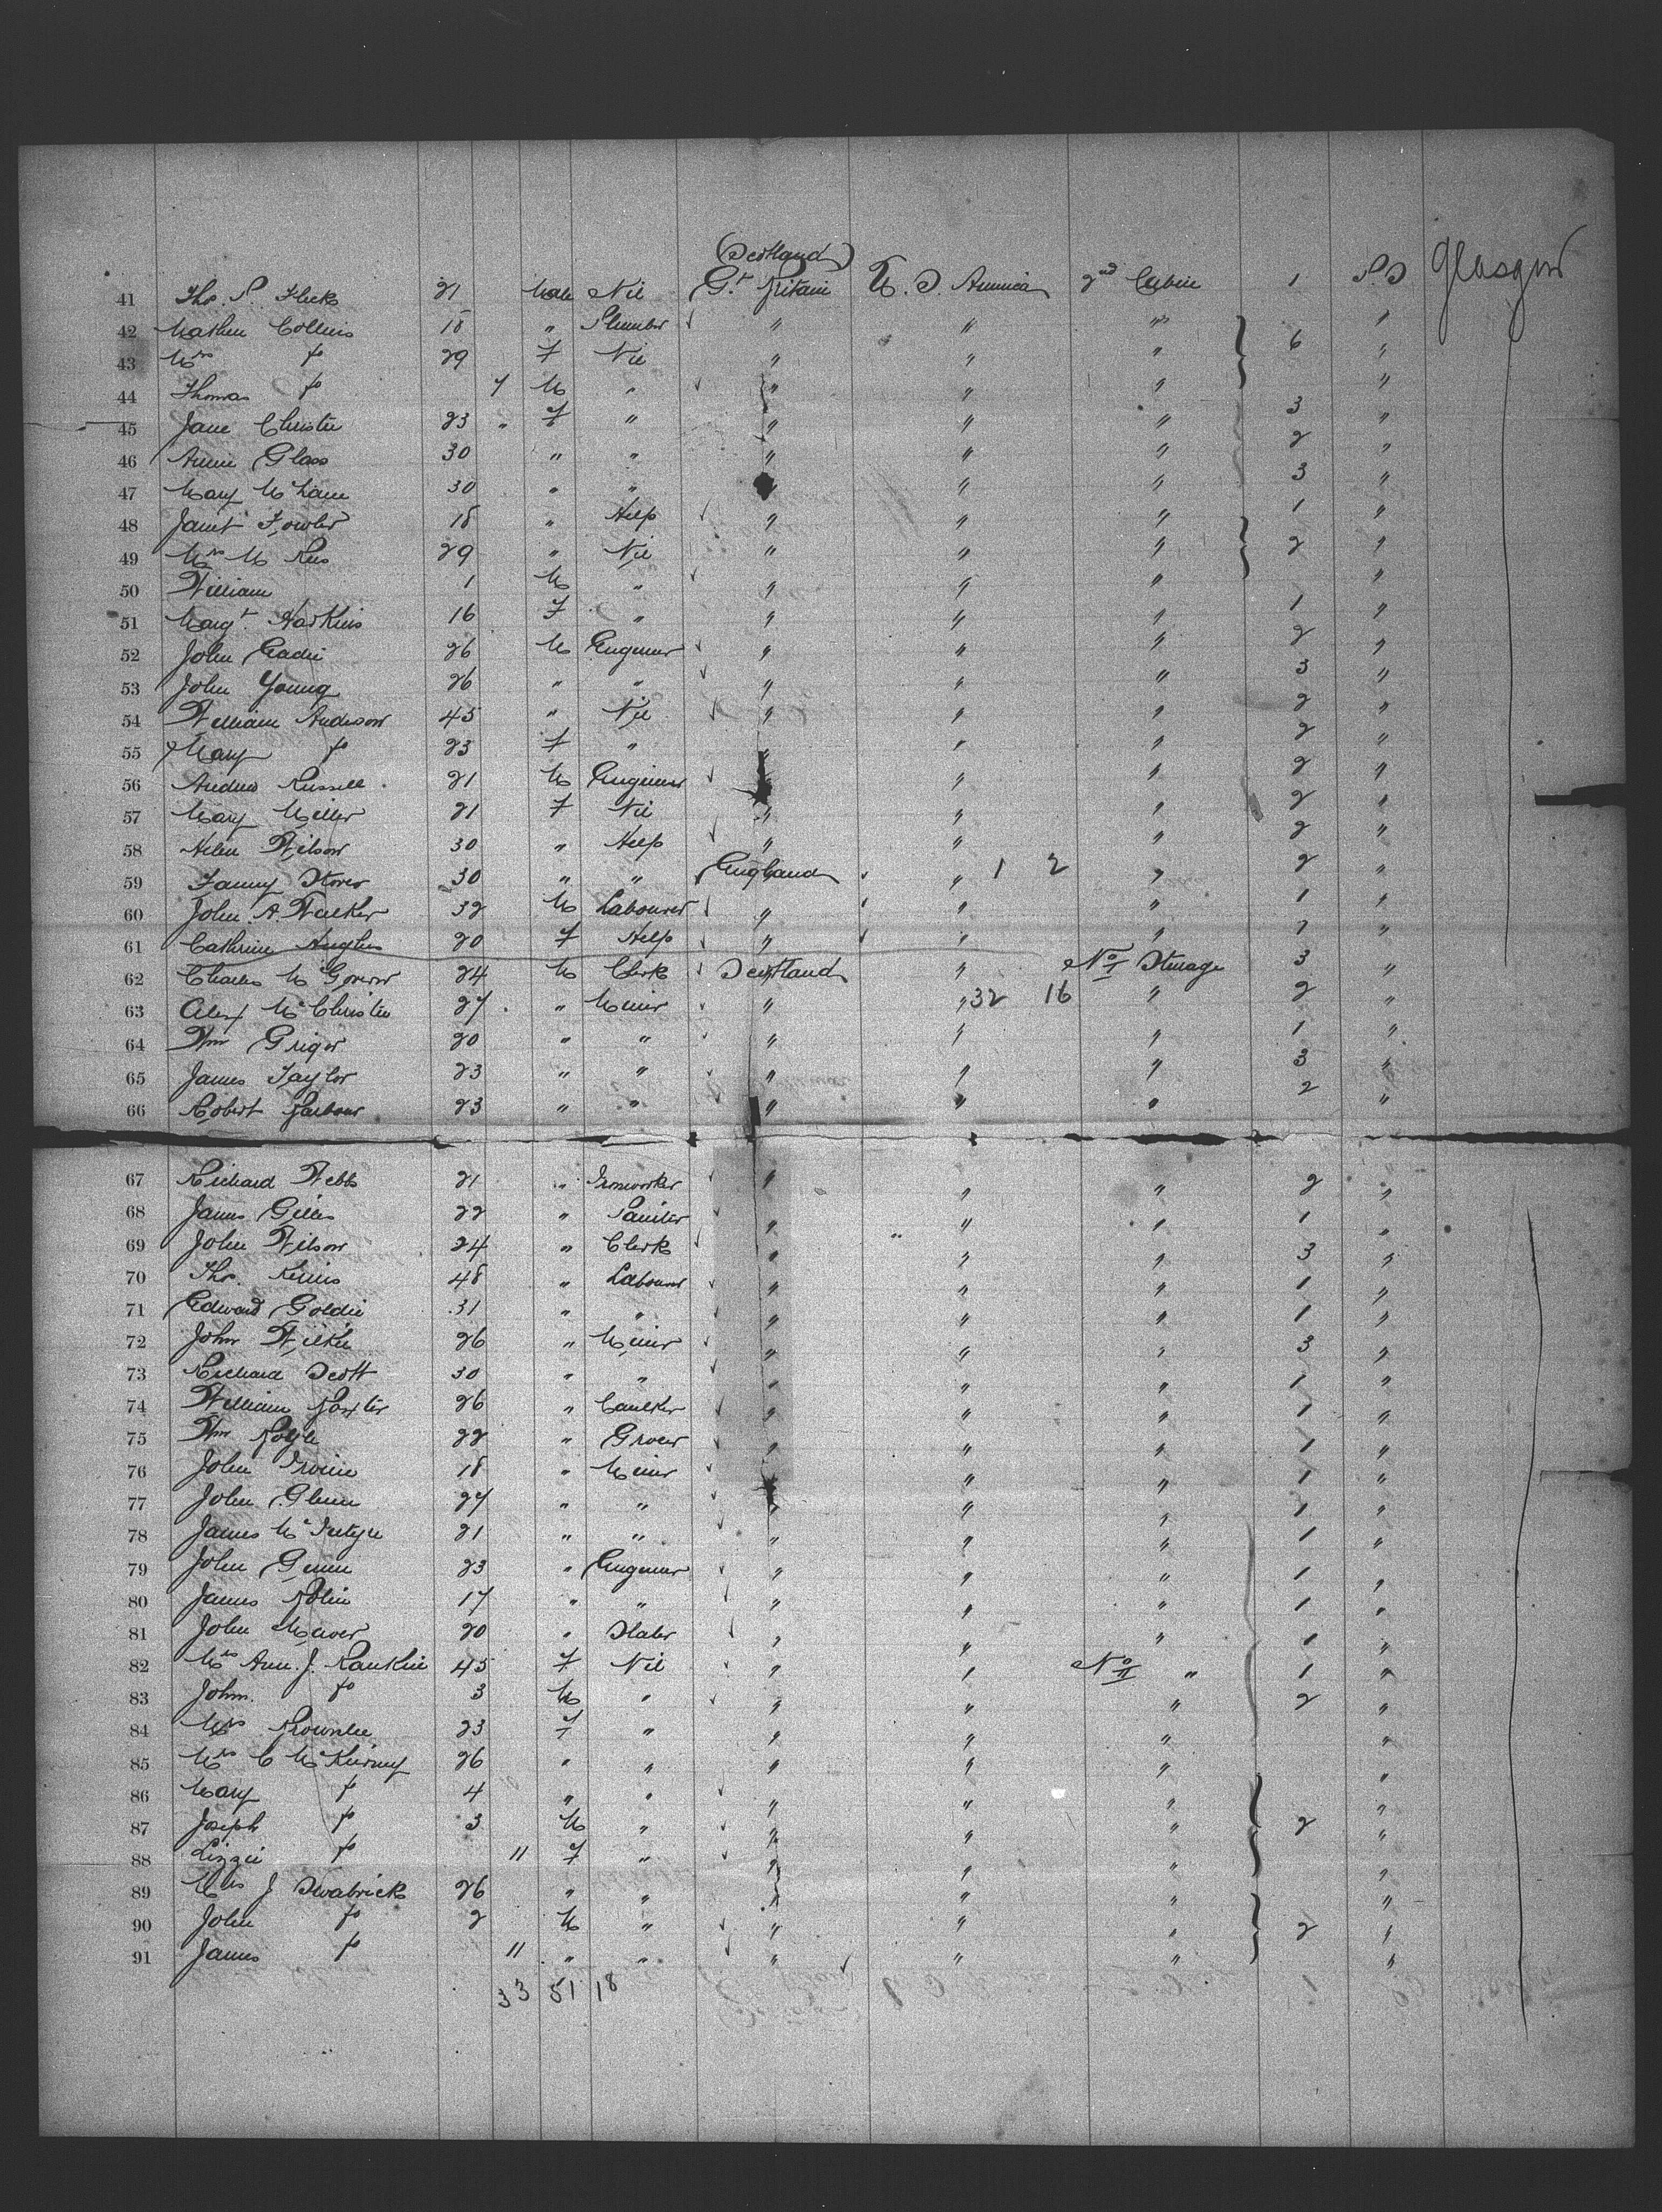 (Scotland)
41 Tho. S. Flecks 21 Male Nil Gt. Britain U. S. America 2nd Cabin 1 P.S Glasgow
42 Mathew Collins 18 " Plumber " " " "
43 Mrs Do 29 F Nil " " " 6 "
44 Thomas Do 7 M " " " " "
45 Jane Christie 23 " F " " " " 3 "
46 Annie Glass 30 " " " " " 2 "
47 Mary McLane 30 " " " " " 3 "
48 Janet Fowler 18 " Help " " " 1 "
49 Mrs M Rees 29 " Nil " " " 2 "
50 William 1 M " " " " "
51 Margt. Harkins 16 F " " " " 1 "
52 John Eadie 26 M Engineer " " " 2 "
53 John Young 26 " " " " " 3 "
54 William Anderson 45 " Nil " " " 2 "
55 Mary Do 23 F " " " " 2 "
56 Andrew Russell 21 M Engineer " " " 2 "
57 Mary Miller 21 F Nil " " " 2 "
58 Helen Wilson 30 " Help " " " 2 "
59 Fanny Storer 30 " " England " 1 2 " 2 "
60 John A. Walker 32 M Labourer " " " 1 "
61 Cathrine Hughes 20 F Help " " " 1 "
62 Charles McGovern 24 M Clerk Scotland " No I Steerage 3 "
63 Alex McChristie 27 " Miner " " 32 16 " 2 "
64 Wm Grigor 20 " " " " " 1 "
65 James Taylor 23 " " " " " 3 "
66 Robert Barbour 23 " " " " " 2 "
67 Richard Webb 21 " Ironworker " " " 2 "
68 James Gilles 22 " Painter " " " 1 "
69 John Wilson 24 " Clerk " " " 3 "
70 Tho. 48 " Labourer " " " 1 "
71 Edward Goldie 31 " " " " " 1 "
72 John Wilkie 26 " Miner " " " 3 "
73 Richard Scott 30 " " " " " 1 "
74 William Baxter 26 " Caulker " " " 1 "
75 Wm Boyle 22 " Grocer " " " 1 "
76 John Irvine 18 " Miner " " " 1 "
77 John Glenn 27 " " " " " 1 "
78 James McIntyre 21 " " " " " 1 "
79 John Gunn 23 " Engineer " " " 1 "
80 James 17 " " " " " 1 "
81 John 20 " Slater " " " 1 "
82 Mrs Ann. J. Rankin 45 F Nil " " No II " 1 "
83 John. Do 3 M " " " " 2 "
84 Mrs Brownlee 23 F " " " " "
85 Mrs C McKierney 26 " " " " " "
86 Mary Do 4 " " " " " "
87 Joseph Do 3 M " " " " 2 "
88 Lizzie Do 11 F " " " " "
89 Mrs J Swabrick 26 " " " " " "
90 John Do 2 M " " " " 2 "
91 James Do 11 " " " " " "
33 51 18